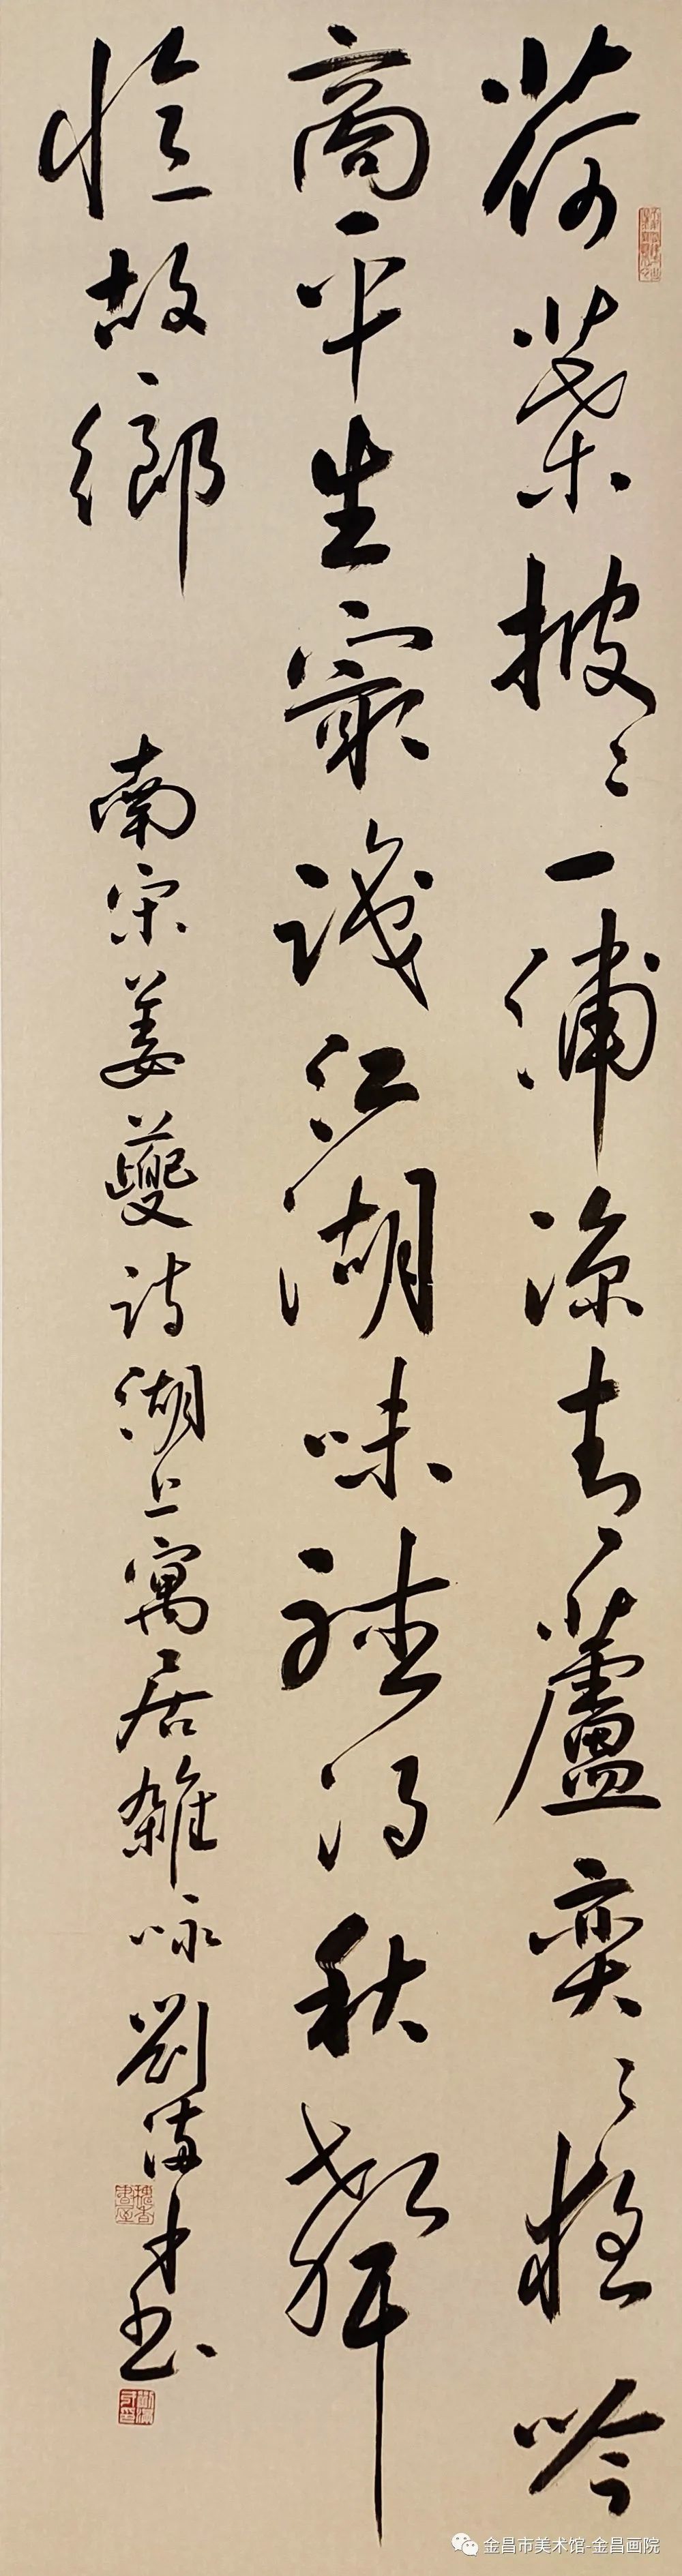 荷葉披〻一浦涼青〻蘆奕〻夜吟
商平生最識江湖味聽得秋聲
憶故鄉
南宋姜夔詩湖上寓居雜咏劉滿才书
金昌市美术馆-金昌画院